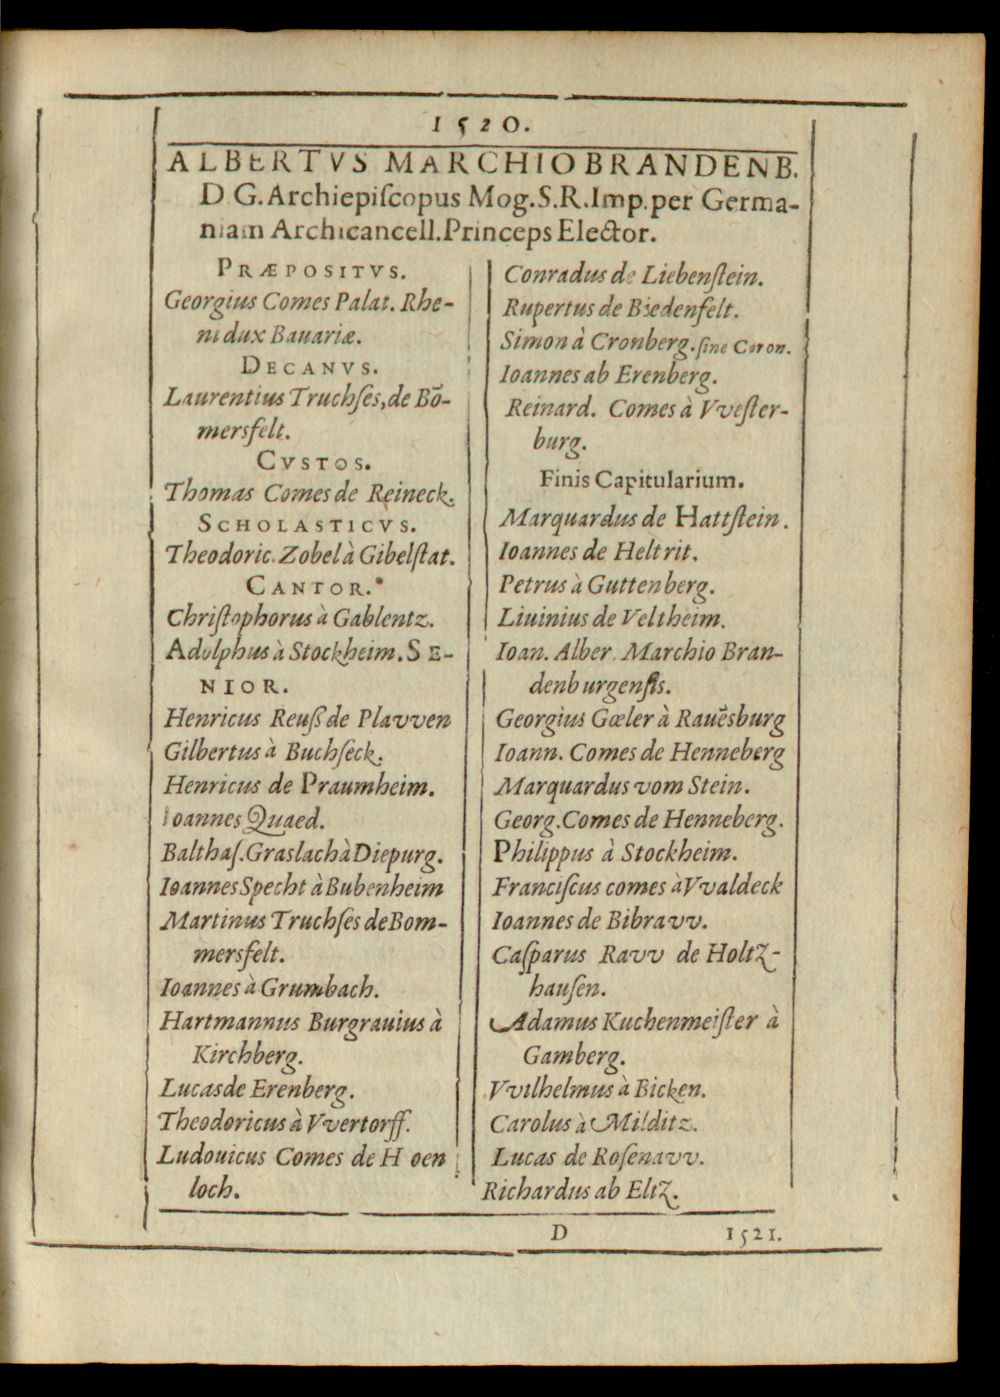 1520.
ALBERTVS MARCHIO BRANDENB.
D G. Archiepiſcopus Mog. S. R. Imp. per Germa-
niam Archicancell. Princeps Elector.
PRÆPOSITVS.
Georgius Comes Palat. Rhe-
ni dux Bauariæ.
DECANVS.
Laurentius Truchſes, de Bō-
mersfelt.
CVSTOS.
Thomas Comes de Reineck.
SCHOLASTICVS.
Theodoric. Zobel à Gibelſtat.
CANTOR.
Chriſtophorus à Gablentz.
Adolphus à Stockheim. SE-
NIOR.
Henricus Reuß de Plavven
Gilbertus à Buchſeck.
Henricus de Praumheim.
Ioannes Quaed.
Balthaſ. Graslach à Diepurg.
Ioannes Specht à Bubenheim
Martinus Truchſes de Bom-
mersfelt.
Ioannes à Grumbach.
Hartmannus Burgrauius à
Kirchberg.
Lucas de Erenberg.
Theodoricus à Vvertorff.
Ludouicus Comes de Hoen
loch.
Conradus de Liebenſtein.
Rupertus de Biedenfelt.
Simon à Cronberg. ſine Coron.
Ioannes ab Erenberg.
Reinard. Comes à Vveſter-
burg.
Finis Capitularium.
Marquardus de Hattſtein.
Ioannes de Heltrit.
Petrus à Guttenberg.
Liuinius de Veltheim.
Ioan. Alber. Marchio Bran-
denburgenſis.
Georgius Gœler à Rauēsburg
Ioann. Comes de Henneberg
Marquardus vom Stein.
Georg. Comes de Henneberg.
Philippus à Stockheim.
Franciſcus comes à Vvaldeck
Ioannes de Bibravv.
Caſparus Ravv de Holtz-
hauſen.
Adamus Kuchenmeiſter à
Gamberg.
Vvilhelmus à Bicken.
Carolus à Milditz.
Lucas de Roſenavv.
Richardus ab Eltz.
D 1521.